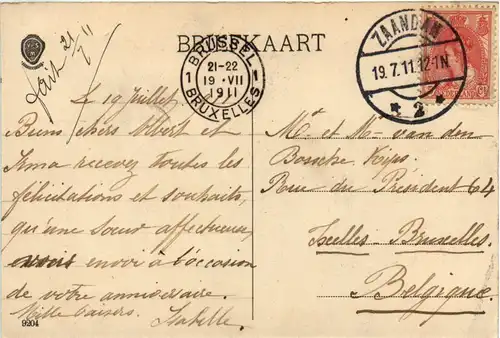 BRIEFKAART
fait 21/7 11
BRUSSEL
1 21-22 1
19 · VII
1911
BRUXELLES
ZAANDAM
19.7.11.12-1N
* 2 *
Le 19 Juillet.
Biens chers Albert et
Irma recevez toutes les
félicitations et souhaits,
qu'une Sœur affectueuse
envoi à l'occasion
de votre anniversaire.
Mille baisers.
Isabelle.
Mr et Me van den
Bossche Kips
Rue du Président 64
Ixelles-Bruxelles.
Belgique
9204